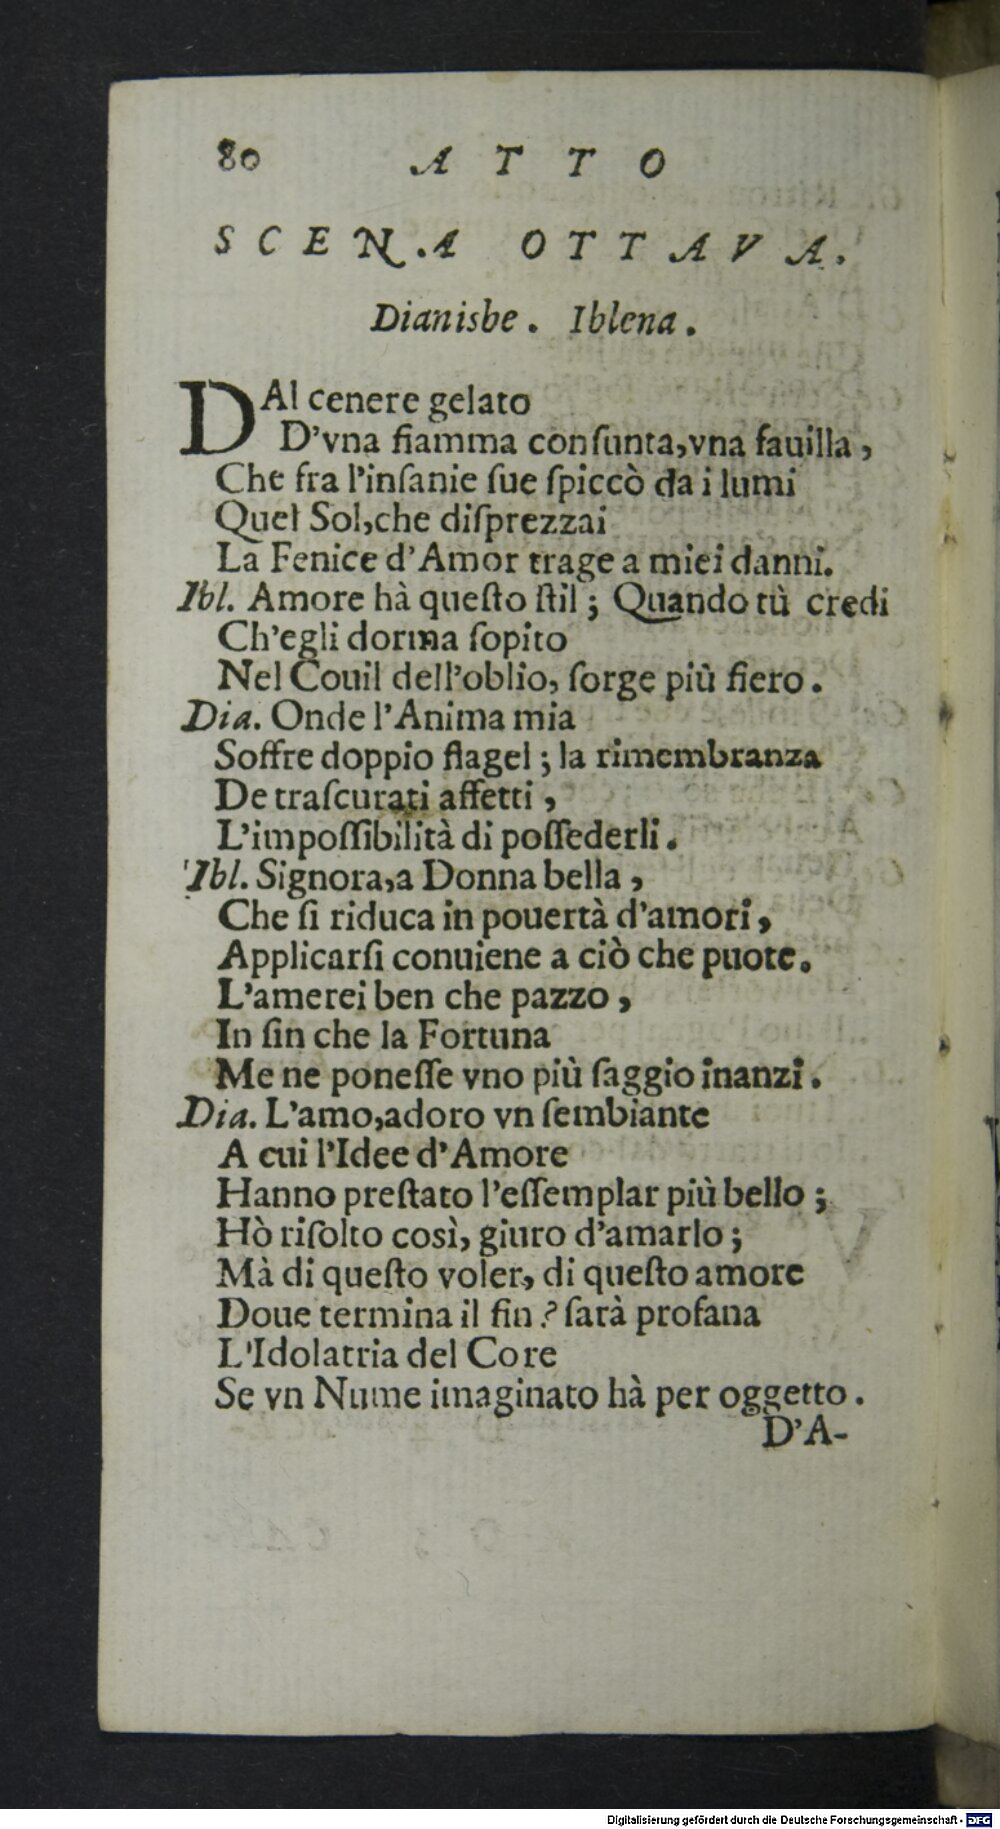 80 ATTO
SCENA OTTAVA.
Dianisbe. Iblena.
DAl cenere gelato
D'vna fiamma conſunta,vna fauilla,
Che fra l'inſanie ſue ſpiccò da i lumi
Quel Sol,che diſprezzai
La Fenice d'Amor trage a miei danni.
Ibl. Amore hà queſto ſtil; Quando tù credi
Ch'egli dorma ſopito
Nel Couil dell'oblio, ſorge più fiero.
Dia. Onde l'Anima mia
Soffre doppio flagel; la rimembranza
De traſcurati affetti,
L'impoſſibilità di poſſederli.
Ibl. Signora,a Donna bella,
Che ſi riduca in pouertà d'amori,
Applicarſi conuiene a ciò che puote.
L'amerei ben che pazzo,
In ſin che la Fortuna
Me ne poneſſe vno più ſaggio inanzi.
Dia. L'amo,adoro vn ſembiante
A cui l'Idee d'Amore
Hanno preſtato l'eſſemplar più bello;
Hò riſolto così, giuro d'amarlo;
Mà di queſto voler, di queſto amore
Doue termina il fin? ſarà profana
L'Idolatria del Core
Se vn Nume imaginato hà per oggetto.
D'A-
Digitalisierung gefördert durch die Deutsche Forschungsgemeinschaft - DFG